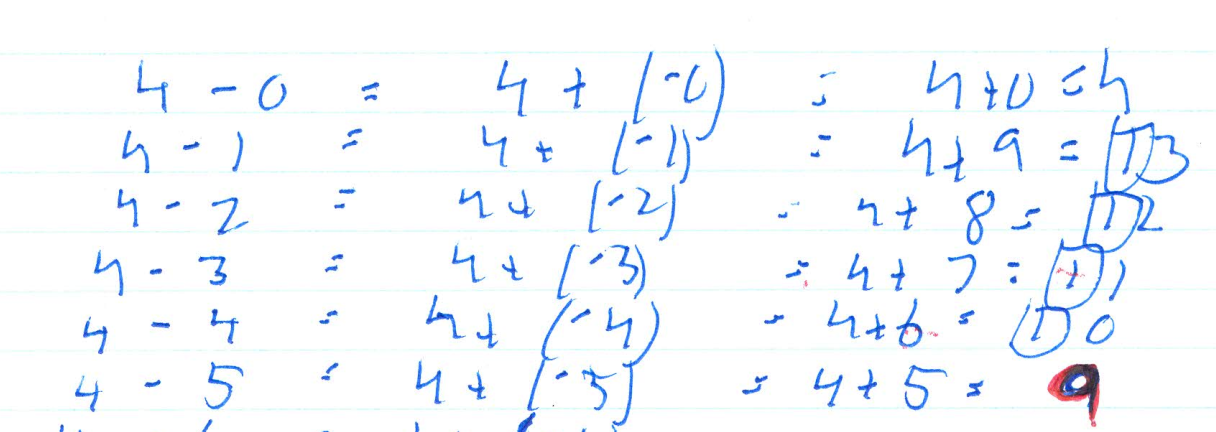 4 - 0 = 4 + (-0) = 4+0 = 4
4 - 1 = 4 + (-1) = 4+9 = 13
4 - 2 = 4 + (-2) = 4+ 8 = 12
4 - 3 = 4 + (-3) = 4+ 7 = 11
4 - 4 = 4 + (-4) = 4+6 = 10
4 - 5 = 4 + (-5) = 4+ 5 = 9